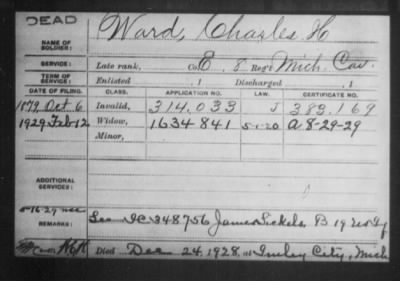 DEAD
NAME OF SOLDIER: Ward, Charles H
SERVICE: Late rank, Co. E, 8 Reg't Mich. Cav.
TERM OF SERVICE: Enlisted , 1 Discharged , 1
DATE OF FILING. CLASS. APPLICATION NO. LAW. CERTIFICATE NO.
1879 Oct 6 Invalid, 314.033 383.169
1929 Feb 12 Widow, 1634841 5-1-20 A 8-29-29
Minor,
ADDITIONAL SERVICES:
5-16-29
REMARKS: See IC 348756 James Sickels B 19
Died Dec 24, 1928, at Imley City, Mich